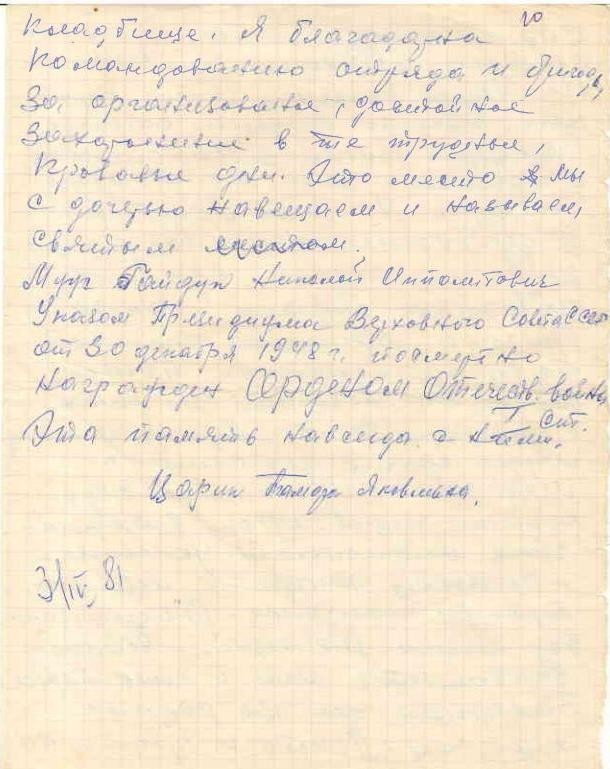 10
кладбище. Я благодарна
командованию отряда и бригады
за организованное, достойное
захоронение в те трудные,
кровавые дни. Это место мы
с дочерью навещаем и называем
святым местом.
Муж Гайдук Николай Ипполитович
Указом Президиума Верховного Совета СССР
от 30 декабря 1948 г. посмертно
награжден Орденом Отечеств. войны
I ст.
Эта память навсегда с нами.
Царик Тамара Яковлевна.
3/IV, 81